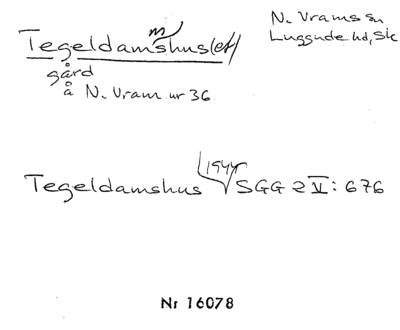 Tegeldamshus(et)
m
N. Vrams sn
Luggude hd, Sk
gård
å N. Vram nr 36
Tegeldamshus 1944 SGG 2 V: 676
Nr 16078